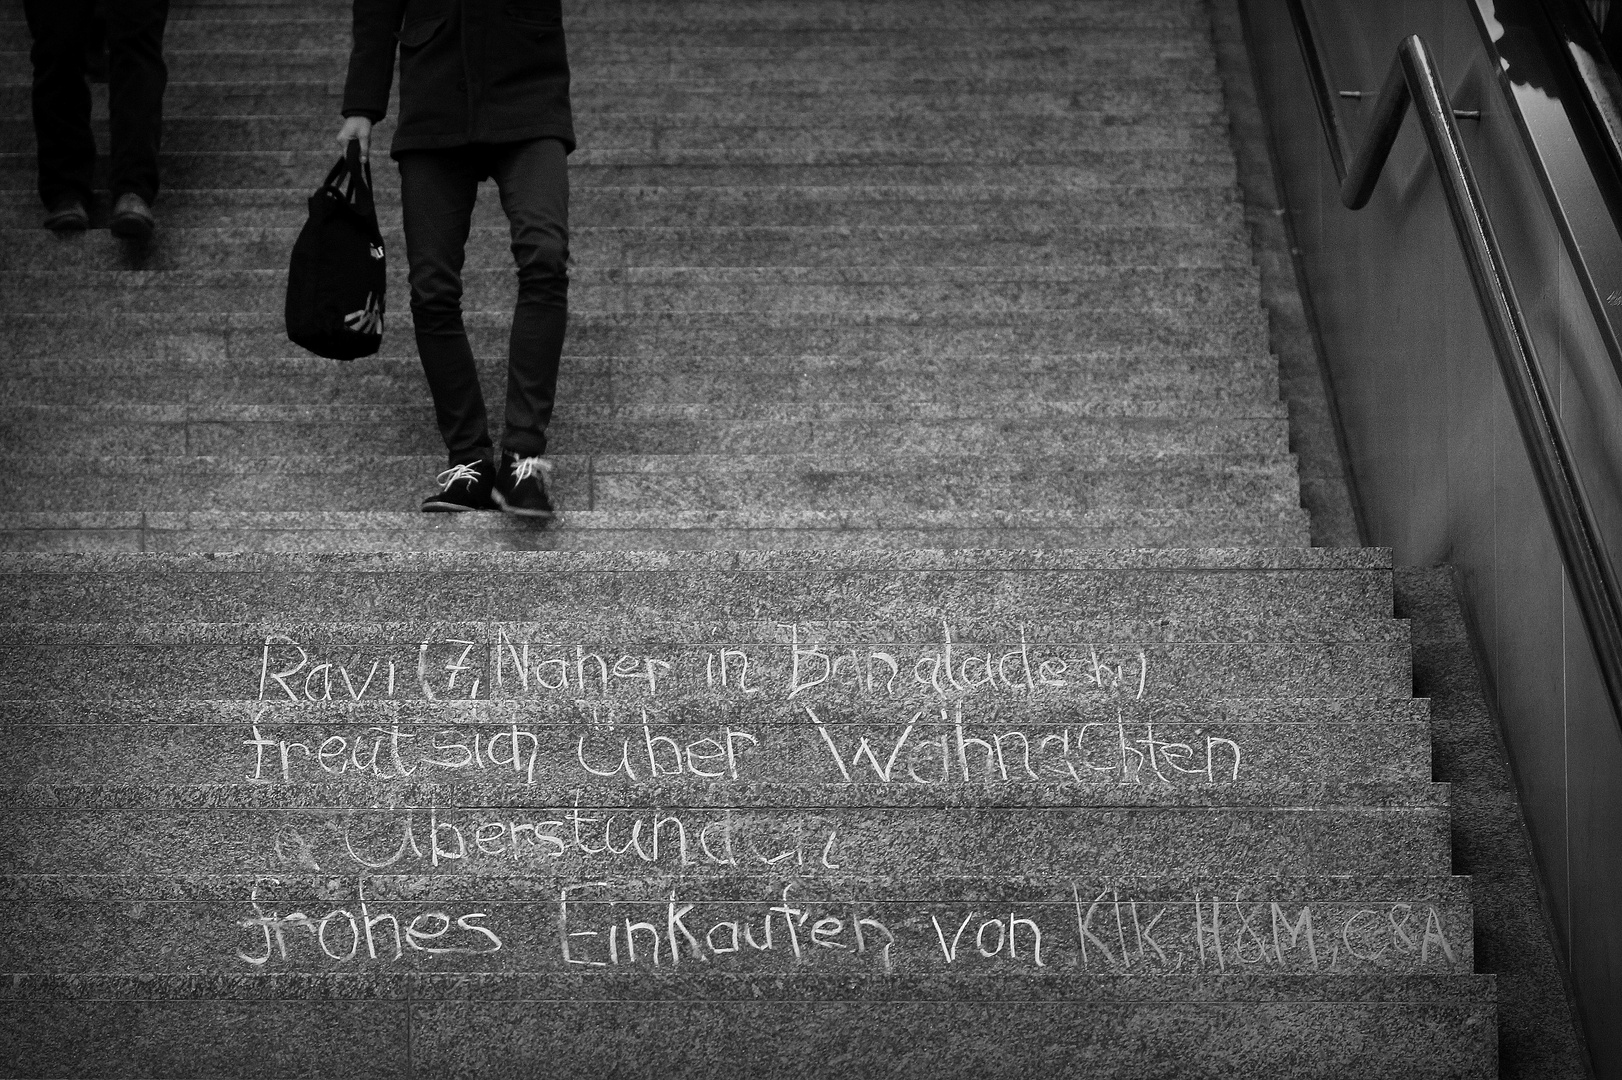 Ravi (7, Näher in Bangladesh)
freut sich über Weihnachten
& Überstunden
frohes Einkaufen von KIK, H&M, C&A